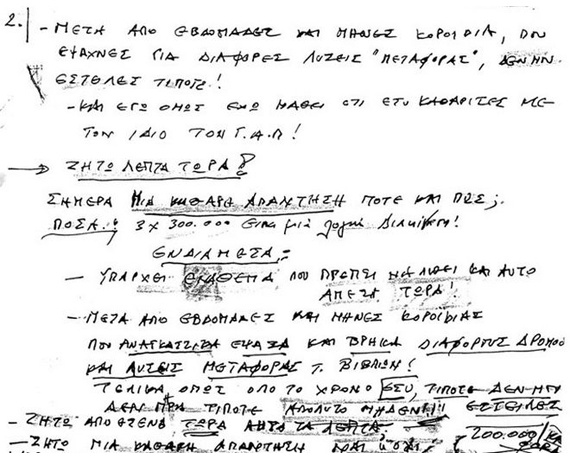 2. - ΜΕΤΑ ΑΠΟ ΕΒΔΟΜΑΔΕΣ ΚΑΙ ΜΗΝΕΣ ΚΟΡΟΙΔΙΑ, ΠΟΥ
ΕΨΑΧΝΕΣ ΓΙΑ ΔΙΑΦΟΡΕΣ ΛΥΣΕΙΣ "ΜΕΤΑΦΟΡΑΣ", ΔΕΝ ΜΗ
ΕΣΤΕΛΕΣ ΤΙΠΟΤΕ!
- ΚΑΙ ΕΓΩ ΟΜΩΣ ΕΧΩ ΜΑΘΕΙ ΟΤΙ ΕΣΥ ΚΑΘΑΡΙΣΕΣ ΜΕ
ΤΟΝ ΙΔΙΟ ΤΟΝ Γ.Α.Π!
→ ΖΗΤΩ ΛΕΠΤΑ ΤΩΡΑ!
ΣΗΜΕΡΑ ΜΙΑ ΚΑΘΑΡΗ ΑΠΑΝΤΗΣΗ ΠΟΤΕ ΚΑΙ ΠΩΣ;
ΠΟΣΑ! 3 x 300.000 ΕΙΝΑΙ μιά λογική
ΕΝΔΙΑΜΕΣΑ:
- ΥΠΑΡΧΕΙ ΠΟΥ ΠΡΕΠΕΙ ΝΑ ΛΥΘΕΙ ΚΑΙ ΑΥΤΟ
ΑΜΕΣΑ ΤΩΡΑ!
- ΜΕΤΑ ΑΠΟ ΕΒΔΟΜΑΔΕΣ ΚΑΙ ΜΗΝΕΣ ΚΟΡΟΙΔΙΑΣ
ΠΟΥ ΑΝΑΓΚΑΣΤΗΚΑ ΕΨΑΞΑ ΚΑΙ ΒΡΗΚΑ ΔΙΑΦΟΡΟΥΣ ΔΡΟΜΟΥΣ
ΚΑΙ ΛΥΣΕΙΣ ΜΕΤΑΦΟΡΑΣ Τ. ΒΙΒΛΙΩΝ!
ΤΕΛΙΚΑ, ΟΠΩΣ ΟΛΟ ΤΟ ΧΡΟΝΟ ΕΣΥ, ΤΙΠΟΤΕ ΔΕΝ ΜΗ
ΤΙΠΟΤΕ ΑΠΟΛΥΤΟ ΜΗΔΕΝ!!! ΕΣΤΕΙΛΕΣ
- ΖΗΤΩ ΑΠΟ ΕΣΕΝΑ ΤΩΡΑ ΑΥΤΑ ΤΑ ΛΕΠΤΑ. 200.000/
- ΖΗΤΩ ΜΙΑ ΚΑΘΑΡΗ ΑΠΑΝΤΗΣΗ ΚΑΙ